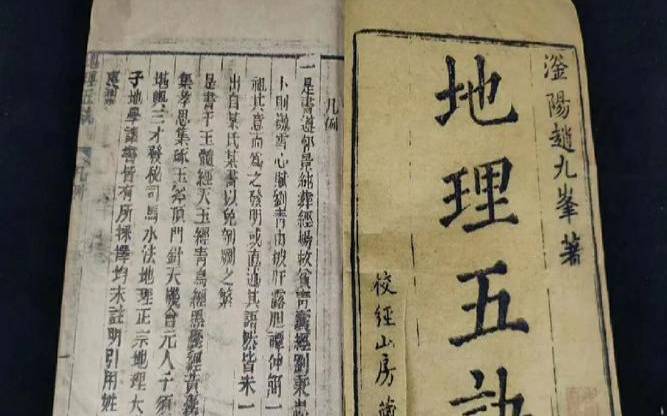 滏陽趙九峯著
地理五訣
校經山房藏
凡例
一是書遵郭景純葬經楊救貧青囊經劉秉忠
卜則巍雪心賦劉青田披肝露胆譚仲簡
祖其意而為之發明或直述其語然皆未一
出自某氏某書以免剞劂之繁
是書于玉髓經天玉經青烏經照經黃
集孝思集琢玉斧頂門針天機會元人子須
堪輿三才發秘司馬水法地理正宗地理大
子地學諸書皆有所採擇均未註明引用姓